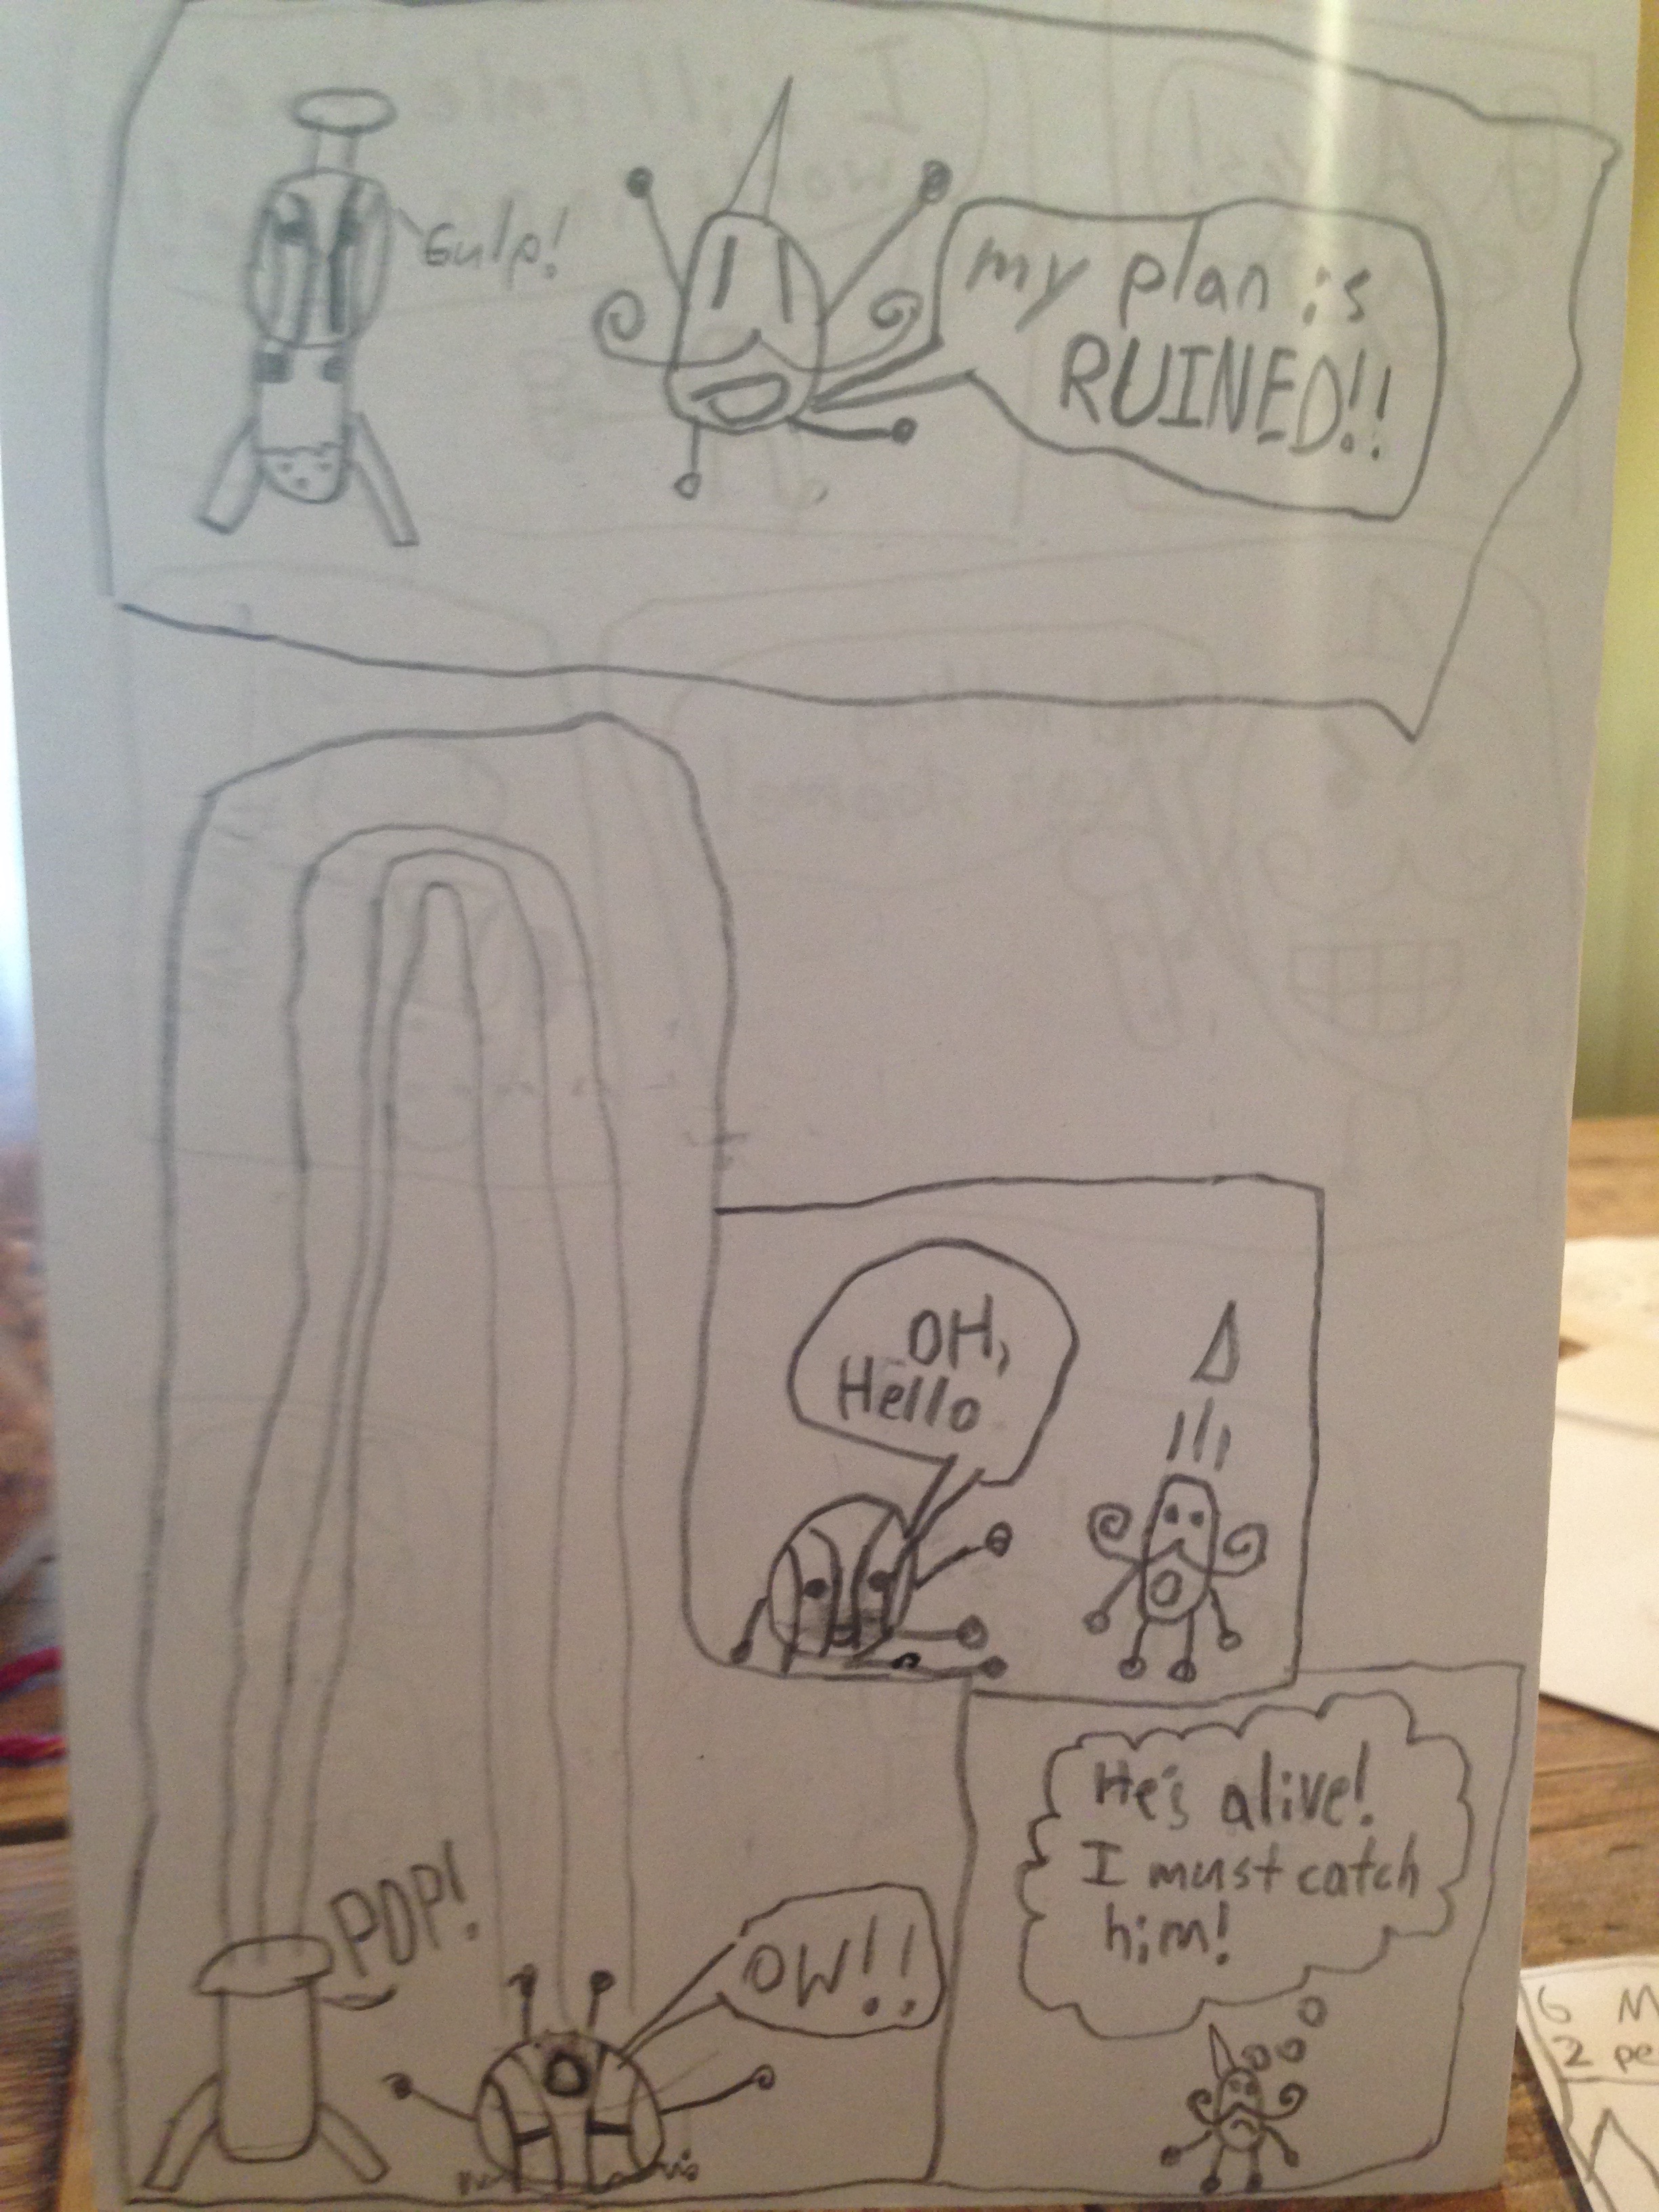 Gulp!
my plan is
RUINED!!
POP!
OW!!
OH,
Hello
He's alive!
I must catch
him!
6 M
2 pe